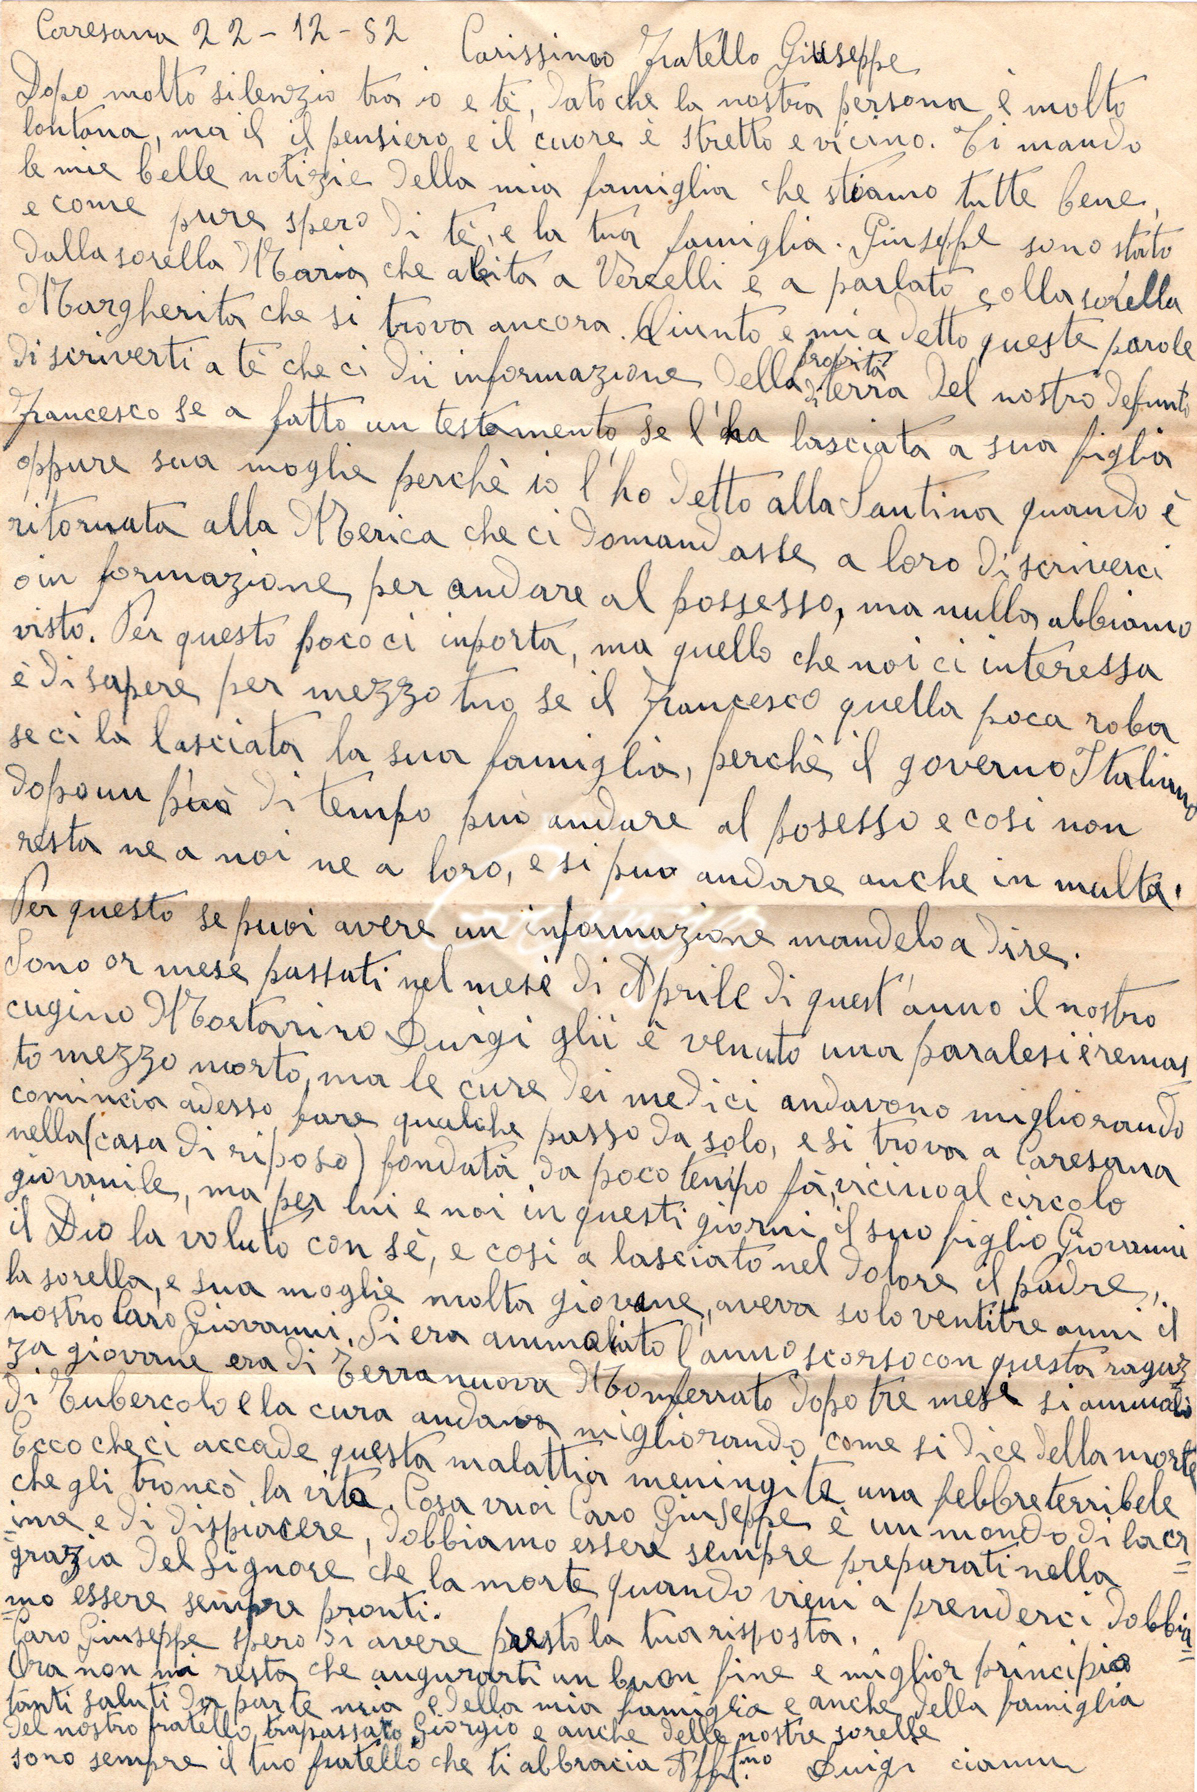 Caresana 22-12-52
Carissimo Fratello Giuseppe
Dopo molto silenzio tra io e tè, dato che la nostra persona è molto
lontana, ma il il pensiero e il cuore è stretto e vicino. Ti mando
le mie belle notizie della mia famiglia che stiamo tutte bene,
e come pure spero di tè, e la tua famiglia. Giuseppe sono stato
dalla sorella Maria che abita a Vercelli e a parlato colla sorella
Margherita che si trova ancora. Giunto e mi a detto queste parole
di scriverti a tè che ci dii informazione della proprità di terra del nostro defunto
Francesco se a fatto un testamento, se l'ha lasciata a sua figlia
oppure sua moglie perchè io l'ho detto alla Santina quando è
ritornata alla Merica che ci domandasse a loro di scriverci
o in formazione per andare al possesso, ma nulla abbiamo
visto. Per questo poco ci inporta, ma quello che noi ci interessa
è di sapere per mezzo tuo se il Francesco quella poca roba
se ci la lasciata la sua famiglia, perchè il governo Italiano
dopo un può di tempo può andare al posesso e cosi non
resta ne a noi ne a loro, e si puo andare anche in multa.
Per questo se puoi avere un informazione mandelo a dire.
Sono or mese passati nel mese di Aprile di quest'anno il nostro
cugino Mostarino Luigi glii è venuto una paralesi è remas
to mezzo morto, ma le cure dei medici andavono migliorando
comincia adesso fare qualche passo da solo, e si trova a Caresana
nella (casa di riposo) fondata da poco tempo fà, vicino al circolo
giovanile, ma per lui e noi in questi giorni il suo figlio Giovanni
il Dio la voluto con sè, e cosi a lasciato nel dolore il padre,
la sorella, e sua moglie molta giovane, aveva solo ventitre anni il
nostro Caro Giovanni. Si era ammaliato l'anno scorso con questa ragaz
za giovane era di Terranuova Monferrato dopo tre mese si ammalò
di Tubercolo e la cura andava migliorando come si dice della morte
Ecco che ci accade questa malattia meningite una febbre terribele
che gli troncò la vita. Cosa vuoi Caro Giuseppe è un mondo di lacr=
=ime e di dispiacere, dobbiamo essere sempre preparati nella
grazia del Signore che la morte quando vieni a prenderci dobbia=
=mo essere sempre pronti.
Caro Giuseppe spero di avere presto la tua risposta.
Ora non mi resta che augurarti un buon fine e miglior principio
tanti saluti da parte mia e della mia famiglia e anche della famiglia
del nostro fratello trapassato Giorgio e anche delle nostre sorelle
sono sempre il tuo fratello che ti abbracia Aff.mo Luigi